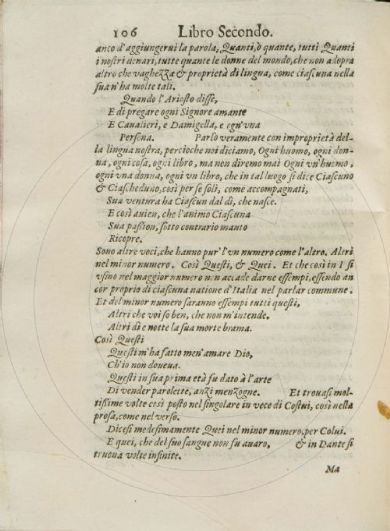 106 Libro Secondo.
anco d'aggiungerui la parola, Quanti, ò quante, tutti Quanti
i nostri denari, tutte quante le donne del mondo, che non adopra
altro che vaghezza & proprietà di lingua, come ciascuna nella
sua n'ha molte tali.
Quando l'Ariosto disse,
E di pregare ogni Signore amante
E Cavalieri, e Damigella, e ogn'vna
Persona. Parlo veramente con improprietà del-
la lingua nostra, percioche noi diciamo, Ogni huomo, ogni don-
na, ogni cosa, ogni libro, ma non diremo mai Ogni vn'huomo,
ogni vna donna, ogni vn libro, che in tal luogo si dice Ciascuno
& Ciascheduno, così per se soli, come accompagnati,
Sua ventura ha Ciascun dal dì, che nasce.
E così auien, che l'animo Ciascuna
Sua passion, sotto contrario manto
Ricopre.
Sono altre voci, che hanno pur l'vn numero come l'altro. Altri
nel minor numero. Così Questi, & Quei. Et che così in I si
vsino nel maggior numero non accade darne essempi, essendo an
cor proprio di ciascuna natione d'Italia nel parlar commune.
Et del minor numero saranno essempi tutti questi,
Altri che voi so ben, che non m'intende.
Altri dì e notte la sua morte brama.
Così Questi
Questi m'ha fatto men'amare Dio,
Ch'io non doueua.
Questi in sua prima età fu dato à l'arte
Di vender parolette, anzi menzogne. Et trouasi mol-
tissime volte così posto nel singolare in veco di Costui, così nella
prosa, come nel verso.
Dicesi medesimamente Quei nel minor numero, per Colui.
E quei, che del suo sangue non fu auaro, & in Dante si
truoua volte infinite.
Ma